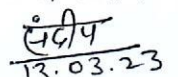 संदीप
13.03.23